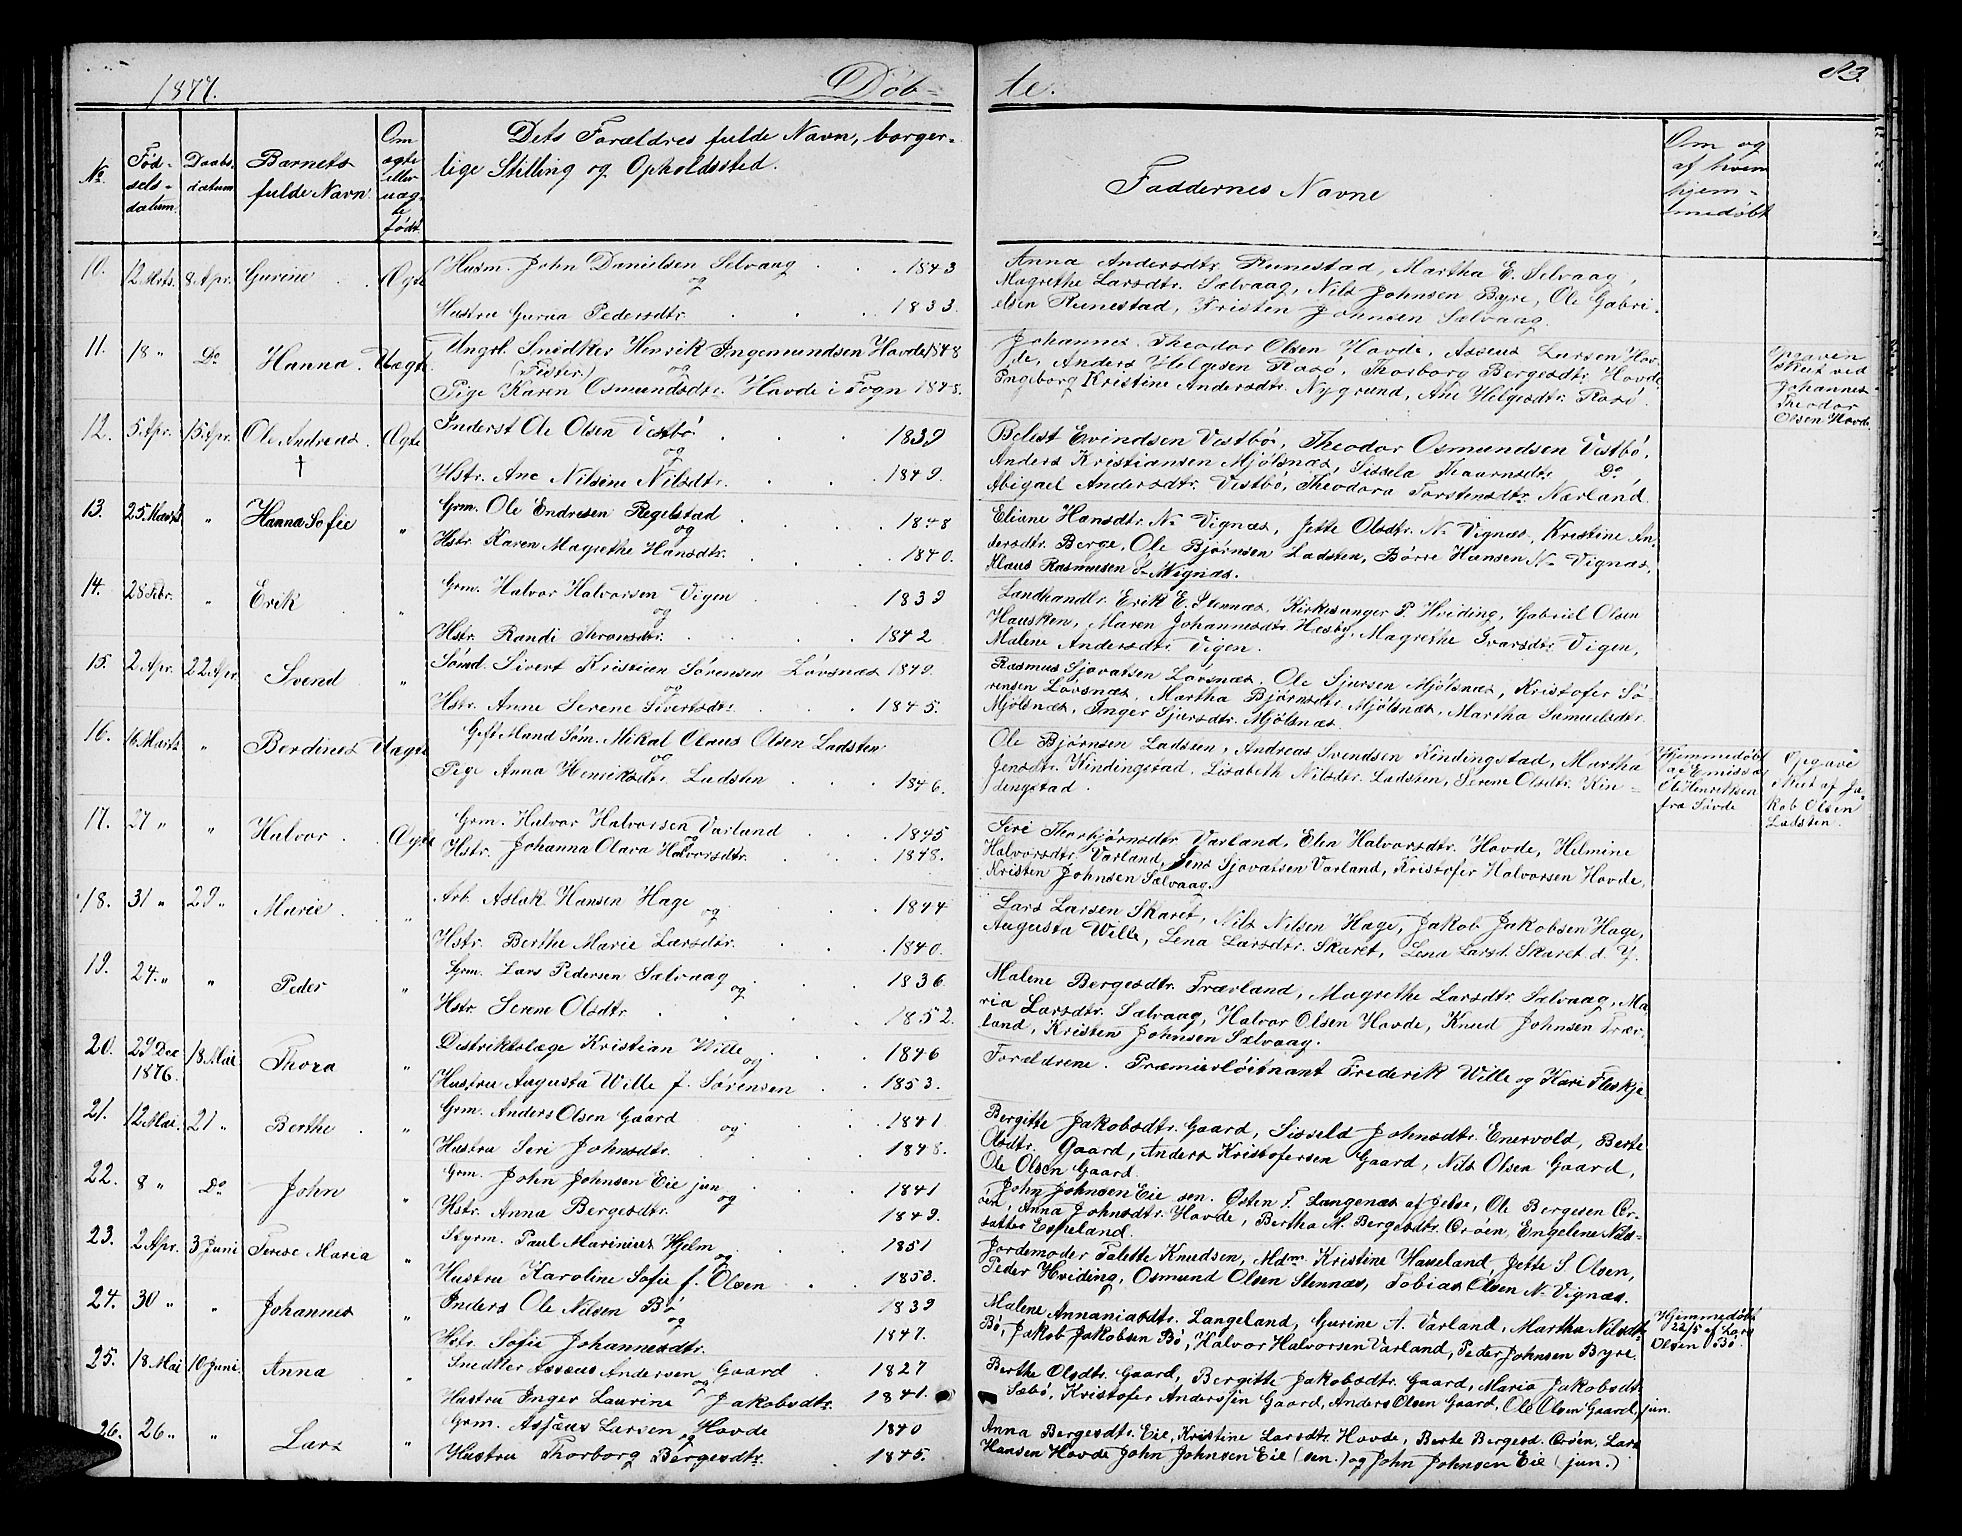 1877. Døb= te. 83.
№
Fød-
sels-
datum.
Daabs-
datum
Barnets
fulde Navn.
Om
ægte
eller
uæg-
te
født.
Dets Forældres fulde Navn, borger-
lige Stilling og Opholdssted.
Faddernes Navne
Om og
af hvem
hjem-
medøbt
10. 12 Mrts. 8 Apr. Gurine Ægte
Husm. John Danielsen Selvaag 1843
og
Hustru Gurua Pedersdtr. 1833.
Anna Andersdtr. Runestad, Martha E. Selvaag,
Magrethe Larsdtr. Sælvaag, Nils Johnsen Byre, Ole Gabri-
elsen Runestad, Kristen Johnsen Sælvaag.
11. 18 " Do Hanna. Uægte
Ungrl. Snedker Henrik Ingemundsen Hovde 1848
(Fister) og
Pige Karen Osmundsdtr. Hovde i Fogn 1848.
Johannes Theodor Olsen Hovde, Asseus Larsen Hov-
de, Anders Helgesen Rosø, Thorborg Bergesdtr. Hovde
Ingeborg Kristine Andersdtr. Nygrund, Ane Helgesdtr. Rosø.
Opgaven
skeet ved
Johannes
Theodor
Olsen Hovde.
12. 5 Apr. 15 Apr. Ole Andreas. Ægte
†
Inderst Ole Olsen Vestbø 1839
og
Hstr. Ane Nilsine Nilsdtr. 1849.
Belest Evindsen Vestbø, Theodor Osmundsen Vestbø,
Anders Kristiansen Mjølsnæs, Sissela Kaarnsdtr. Do
Abigael Andersdtr. Vestbø, Theodora Torstensdtr. Nærland.
13. 25 Marts " Hanna Sofie "
Grm. Ole Endresen Regelstad 1848
og
Hstr. Karen Magrethe Hansdtr. 1840.
Eliane Hansdtr. N. Vignæs, Jette Olsdtr. N. Vignæs, Kristine An-
dersdtr. Berge, Ole Bjørnsen Ladsten, Børre Hansen N. Vignæs,
Klaus Rasmusen S. Vignæs.
14. 28 Febr. " Erik "
Grm. Halvor Halvorsen Vigen 1839
og
Hstr. Randi Thronsdtr. 1842
Landhandlr. Erik E. Stennæs, Kirkesanger P. Hviding, Gabriel Olsen
Hausken, Maren Johannesdtr. Hesby, Magrethe Ivarsdtr. Vigen,
Malene Andersdtr. Vigen.
15. 2 Apr. 22 Apr. Svend "
Sømd. Sivert Kristian Sørensen Løvsnæs 1849.
og
Hstr. Anne Serene Sivertsdtr. 1845.
Rasmus Sjovatsen Lovsnæs, Ole Sjursen Mjølsnæs, Kristofer Sø-
rensen Lovsnæs, Martha Bjørnsdtr. Mjølsnæs, Martha Samuelsdtr.
Mjølsnæs, Inger Sjursdtr. Mjølsnæs.
16. 16 Marts " Berdines Uægte
Gift Mand Søm. Mikal Olaus Olsen Ladsten
og
Pige Anna Henriksdtr. Ladsten 1846.
Ole Bjørnsen Ladsten, Andreas Svendsen Kindingstad, Martha
Jensdtr. Kindingstad, Lisabeth Nilsdtr. Ladsten, Serene Olsdtr. Kin-
dingstad.
Hjemmedøbt
af Emissa
Ole Henriksen
fra Søvde
Opgave
skeet af Ja-
kob Olsen
Ladsten.
17. 27 " " Halvor. Ægte
Grm. Halvor Halvorsen Varland 1845
og
Hstr. Johanna Olava Halvorsdtr. 1848.
Siri Thorbjørnsdtr Varland, Elen Halvorsdtr. Hovde, Helmine
Halvorsdtr. Varland, Jens Sjovatsen Varland, Kristofer Halvorsen Hovde,
Kristen Johnsen Sælvaag.
18. 31 " 29 " Marie. "
Arb. Aslak Hansen Hage 1844
og
Hstr. Berthe Marie Larsdtr. 1840.
Lars Larsen Skaret, Nils Nilsen Hage, Jakob Jakobsen Hage,
Augusta Wille, Lena Larsdtr. Skaret, Lena Larsd. Skaret d. Y.
19. 24. " " Peder "
Grm. Lars Pedersen Sælvaag 1836
og
Hstr. Serene Olsdtr. 1852.
Malene Bergesdtr. Træeland, Magrethe Larsdtr Sælvaag, Ma-
ria Larsdtr. Sælvaag, Halvor Olsen Hovde, Knud Johnsen Træe-
land, Kristen Johnsen Sælvaag.
20. 29 Dec 1876. 18 Mai Thora "
Distriktslæge Kristian Wille 1846
og
Hustru Augusta Wille f. Sørensen 1853.
Forældrene. Præmierløitnant Frederik Wille og Kari Fleskje
21. 12 Mai. 21 " Berthe "
Grm. Anders Olsen Gaard 1841
og
Hustru Seri Johnsdtr. 1848.
Bergitte Jakobsdtr. Gaard, Sisseld Johnsdtr. Enervold, Berte
Olsdtr. Gaard, Anders Kristofersen Gaard, Nils Olsen Gaard,
Ole Olsen Gaard.
22. 8 " Do John "
Grm. John Johnsen Eie jun. 1841
og
Hstr. Anna Bergesdtr. 1849.
John Johnsen Eie sen. Østen T. Langenæs af Jelse, Ole Bergesen Or-
øen, Anna Johnsdtr. Hovde, Bertha M. Bergesdtr. Orøen, Engelene Nils-
datter Espeland.
23. 2 Apr. 3 Juni Terese Maria "
Styrm. Paul Marinius Hjelm 1851
og
Hustru Karoline Sofie f. Olsen 1853.
Jordemoder Talette Knudsen, Mdm Kristine Haveland, Jette S. Olsen,
Peder Hviding, Osmund Olsen Stennæs, Tobias Olsen N. Vignæs.
24. 30 " " Johannes "
Inders Ole Nilsen Bø 1839
og
Hstr. Sofie Johannesdtr. 1847.
Malene Annaniasdtr. Langeland, Gurine A. Varland, Martha Nilsdtr.
Bø, Jakob Jakobsen Bø, Halvor Halvorsen Varland, Peder Johnsen Byre.
Hjemmedøbt
22/5 af Lars
Olsen Bø.
25. 18 Mai 10 Juni. Anna "
Snedker Asseus Andersen Gaard 1827
og
Hustru Inger Laurine Jakobsdtr. 1841.
Berthe Olsdtr. Gaard, Bergitte Jakobsdtr. Gaard, Maria Jakobsdtr.
Sæbø, Kristofer Anderssen Gaard, Anders Olsen Gaard, Ole Olsen Gaard, jun.
26. 26 " " Lars "
Grm. Assæus Larsen Hovde 1840
og
Hustru Thorborg Bergesdtr. 1845.
Anna Bergesdtr. Eie, Kristine Larsdtr. Hovde, Berte Bergesd. Orøen, Lars
Hansen Hovde John Johnsen Eie (sen.) og John Johnsen Eie (jun.)